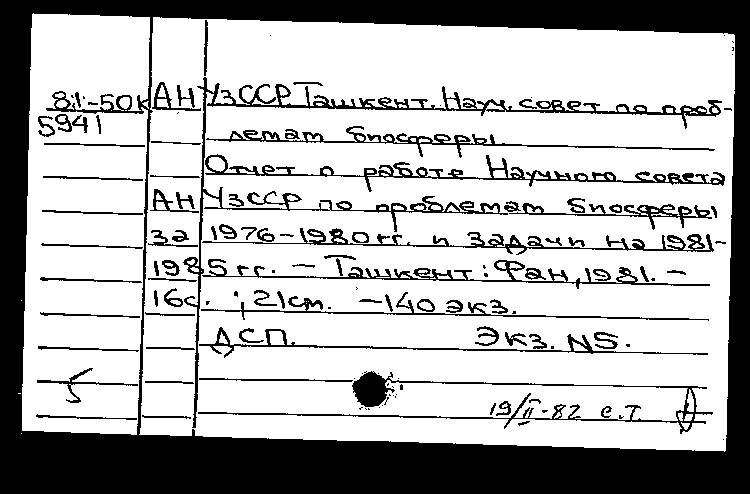 81-50к АН УзССР. Ташкент. Науч. совет по проб-
5941 лемам биосферы.
Отчет о работе Научного совета
АН УзССР по проблемам биосферы
за 1976-1980 гг. и задачи на 1981-
1985 гг. - Ташкент: Фан, 1981. -
16с. ; 21см. - 140 экз.
ДСП. Экз. N5.
5
19/II-82 е.т.